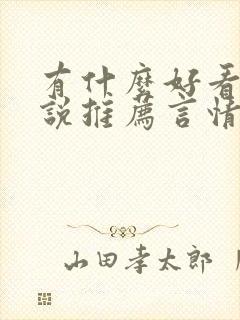 有什麼好看
說推薦言情
山田孝太郎